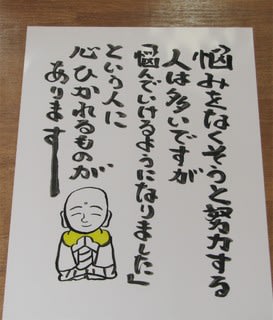 悩みをなくそうと努力する
人は多いですが
「悩んでいけるようになりました」
という人に
心ひかれるものが
あります